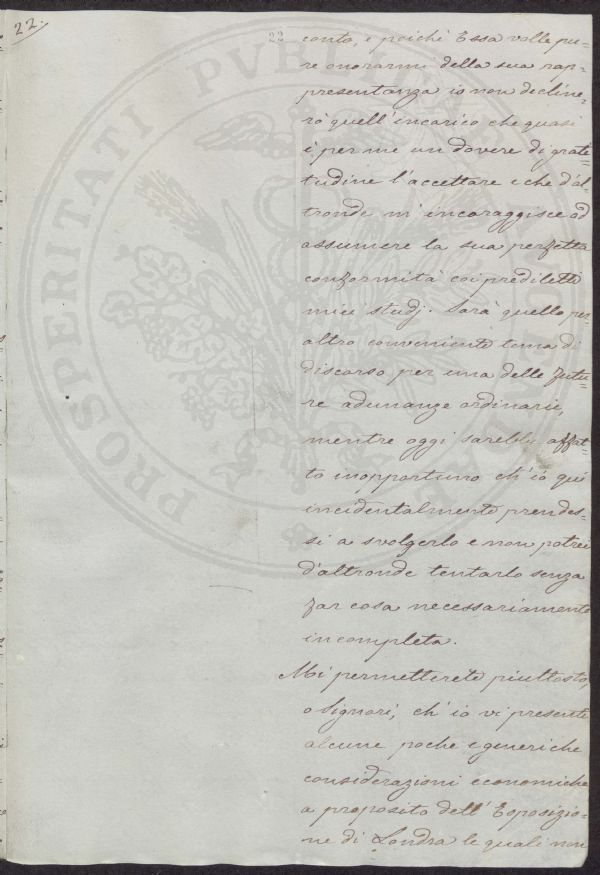 22.
22
conto, e poichè Essa volle pu=
re onorarmi della sua rap=
presentanza io non decline=
rò quell'incarico che quasi
è per me un dovere di grati=
tudine l'accettare e che d'al=
tronde m'incoraggisce ad
assumere la sua perfetta
conformità coi prediletti
miei studj. Sarà quello per
altro conveniente tema di
discorso per una delle futu=
re adunanze ordinarie,
mentre oggi sarebbe affat=
to inopportuno ch'io quì
incidentalmente prendes=
si a svolgerlo e non potrei
d'altronde tentarlo senza
far cosa necessariamente
incompleta.
Mi permetterete piuttosto,
o Signori, ch'io vi presenti
alcune poche e generiche
considerazioni economiche
a proposito dell'Esposizio=
ne di Londra le quali non
PROSPERITATI PVBLICAE AVGENDAE